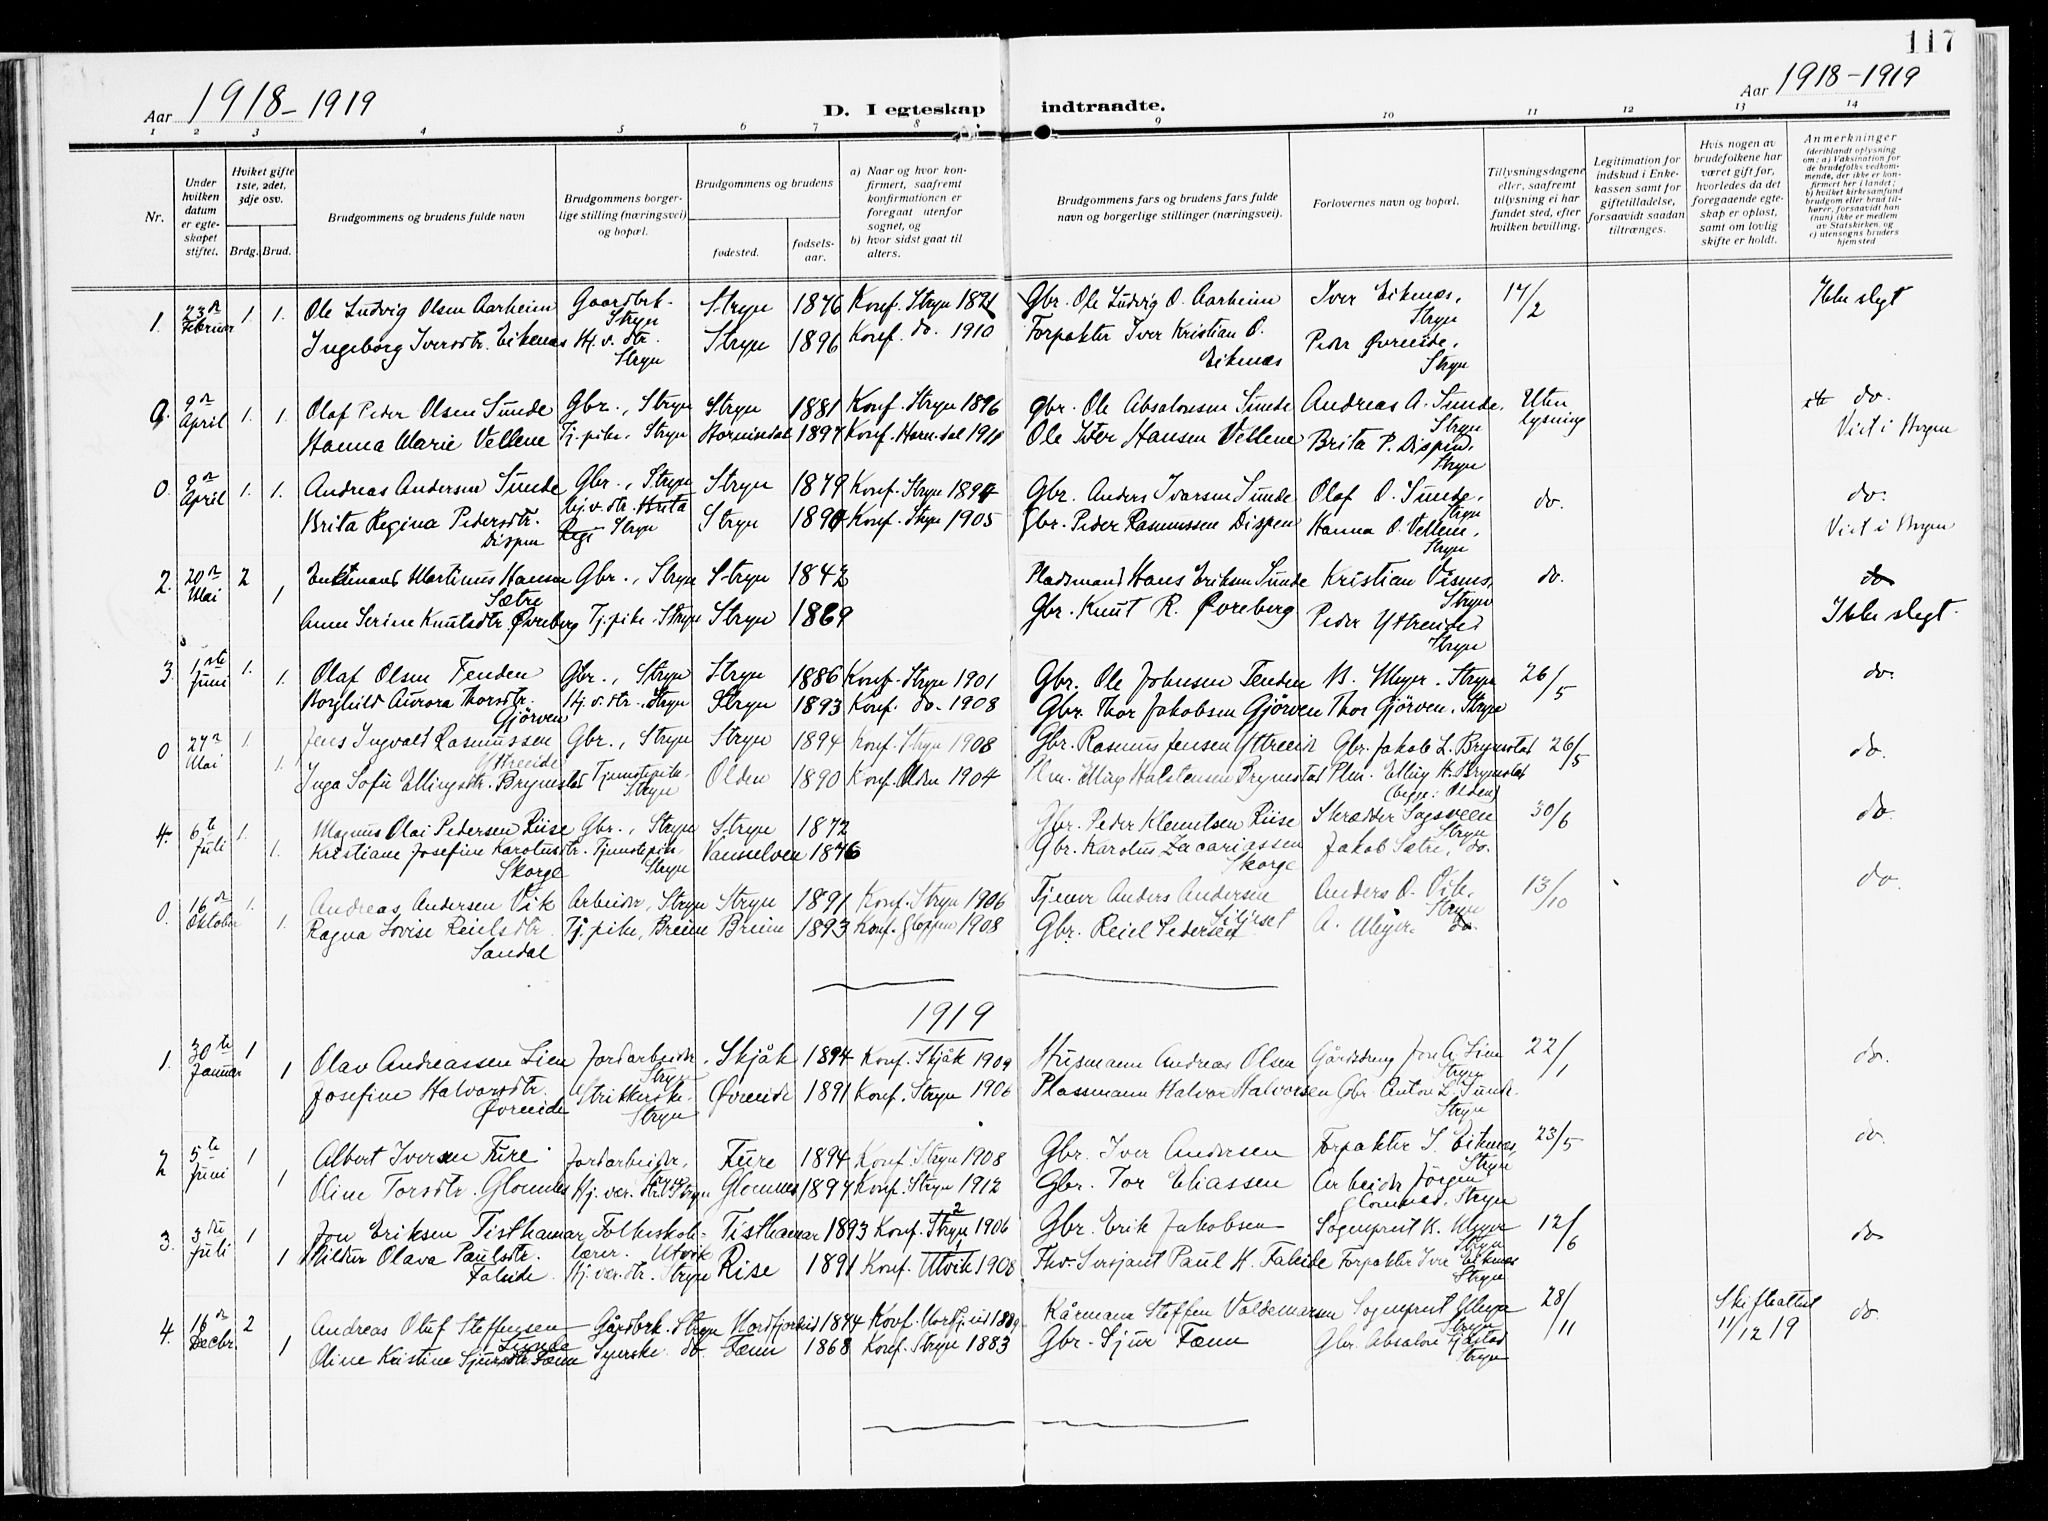 117
Aar 1918-1919
D. I egteskap indtraadte.
Aar 1918-1919
1 2 3 4 5 6 7 8 9 10 11 12 13 14
Nr.
Under hvilken datum er egteskapet stiftet.
Hvilket gifte 1ste, 2det, 3dje osv.
Brdg. Brud.
Brudgommens og brudens fulde navn
Brudgommens borgerlige stilling (næringsvei) og bopæl.
Brudgommens og brudens
fødested. fødselsaar.
a) Naar og hvor konfirmert, saafremt konfirmationen er foregaat utenfor sognet, og
b) hvor sidst gaat til alters.
Brudgommens fars og brudens fars fulde navn og borgerlige stillinger (næringsvei).
Forlovernes navn og bopæl.
Tillysningsdagene eller, saafremt tillysning ei har fundet sted, efter hvilken bevilling.
Legitimation for indskud i Enkekassen samt for giftetilladelse, forsaavidt saadan tiltrænges.
Hvis nogen av brudefolkene har været gift før, hvorledes da det foregaaende egteskap er opløst, samt om lovlig skifte er holdt.
Anmerkninger (deriblandt oplysning om: a) Vaksination for de brudefolks vedkommende, der ikke er konfirmert her i landet; b) hvilket kirkesamfund brudgom eller brud tilhører, forsaavidt han (hun) ikke er medlem av Statskirken, og c) utensogns bruders hjemsted
1. 23de Februar 1 1. Ole Ludvig Olsen Aarheim Gaardbrk. Stryn Stryn 1876 Konf. Stryn 1891 Gbr. Ole Ludvig O. Aarheim Iver Eiknæs, Stryn 17/2 Ikke slegt
Ingeborg Iversdtr. Eiknæs Hj.v. dtr. Stryn Stryn 1896 Konf. do. 1910 Forpakter Iver Kristian O. Eiknæs Peder Øvreeide, Stryn
9. 9de April 1. 1. Olaf Peder Olsen Sunde Gbr., Stryn Stryn 1881 Konf. Stryn 1896 Gbr. Ole Absalonsen Sunde Andreas A. Sunde, Stryn Uten lysning do.
Hanna Marie Vellene Tj.pike, Stryn Hornindal 1897 Konf. Horn.dal Ole Iver Hansen Vellene Brita P. Dispen, Stryn Viet i Bergen
0. 9de April 1. 1. Andreas Andersen Sunde Gbr., Stryn Stryn 1879 Konf. Stryn 1894 Gbr. Anders Ivarsen Sunde Olaf O. Sunde, Stryn do. do.
Brita Regina Pedersdtr. Dispen Hj.v. dtr. Stryn Stryn 1890 Konf. Stryn 1905 Gbr. Peder Rasmussen Dispen Hanna O. Vellene, Stryn Viet i Bergen
2. 20de Mai 2 1 Enkemand Martinus Hansen Sætre Gbr., Stryn Stryn 1842 Pladsmand Hans Eriksen Sunde Kristian Visnes, Stryn do. do
Anne Serine Knutsdtr. Øvreberg Tj.pike, Stryn Stryn 1869 Gbr. Knut R. Øvreberg Peder Ytreeide Stryn Ikke slegt.
3. 1ste Juni 1. 1. Olaf Olsen Tenden Gbr., Stryn Stryn 1886 Konf. Stryn 1901 Gbr. Ole Johnsen Tenden N. Meyer. Stryn 26/5 do.
Borghild Aurora Thorsdtr. Gjörven Hj.v. dtr. Stryn Stryn 1893 Konf. do. 1908 Gbr. Thor Jakobsen Gjörven Thor Gjörven. Stryn
0 27de Mai 1. 1. Jens Ingvald Rasmussen Ytreeide Gbr., Stryn Stryn 1894 Konf. Stryn 1908 Gbr. Rasmus Jensen Ytreeide Gbr. Jakob L. Brynestad 26/5 do.
Inga Sofie Ellingsdtr. Brynestad Tjenestepike. Stryn Olden 1890 Konf. Olden 1904 Plm. Elling Halstensen Brynestad Plm. Elling H. Brynestad (begge: Olden)
4. 6te Juli 1. 1. Magnus Olai Pedersen Riise Gbr., Stryn Stryn 1872 Gbr. Peder Klemetsen Riise Skrædder Sagsveen Stryn 30/6 do.
Kristiane Josefine Karolusdtr. Skorge Tjenestepike Stryn Vanselven 1876 Gbr. Karolus Zacariassen Skorge Jakob Sætre, do.
0. 16de Oktober 1. 1. Andreas Andersen Vik Arbeider, Stryn Stryn 1891 Konf. Stryn 1906 Tjener Anders Andersen Anders O. Vik, Stryn 13/10 do.
Ragna Lovise Reielsdtr. Sandal Tj.pike, Breim Breim 1893 Konf. Gloppen 1908 Gbr. Reiel Pedersen A. Meyer. do.
1919
1. 30te Januar 1 1 Olav Andreassen Lien Jordarbeider Stryn Skjåk 1894 Konf. Skjåk 1909 Husmann Andreas Olsen Gårdsdreng Jon A. Lien Stryn 22/1 do.
Josefine Halvorsdtr. Øvreeide Strikkerske. Stryn Øvreeide 1891 Konf. Stryn 1906 Plassmann Halvor Halvorsen Gbr. Anton L. Sunde. Stryn
2 5te Juni 1 1 Albert Iversen Fure Jordarbeider, Stryn Fure 1894 Konf. Stryn 1908 Gbr. Iver Andersen Forpakter I. Eiknæs, Stryn 23/5 do.
Oline Torsdtr. Glomnes Hj.vær. dtr. Stryn Glomnes 1897 Konf. Stryn 1912 Gbr. Tor Eliassen Arbeider Jörgen Glomnes, Stryn
3. 3die Juli 1 1 Jon Eriksen Tisthamar Folkeskolelærer. Utvik Tisthamar 1893 Konf. Stryn 1906 Gbr. Erik Jakobsen Sogneprest N. Meyer Stryn 12/6 do
Hildur Olava Paulsdtr. Faleide Hj.vær.dtr. Stryn Rise 1891 Konf. Utvik 1908 Fhv. Sersjant Paul H. Faleide Forpakter Iver Eiknæs Stryn
4. 16de Decbr. 2 1 Andreas Oluf Steffensen Sunde Gårdbrk. Stryn Nordfjordeid 1874 Konf. Nordfj.eid 1889 Kårmann Steffen Valdemarsen Sogneprest Meyer Stryn 28/11 Skifteattest 11/12 19 do.
Oline Kristine Sjursdtr. Tænn Syerske do. Tænn 1868 Konf. Stryn 1883 Gbr. Sjur Tænn Gbr. Absalon Tjåstad Stryn